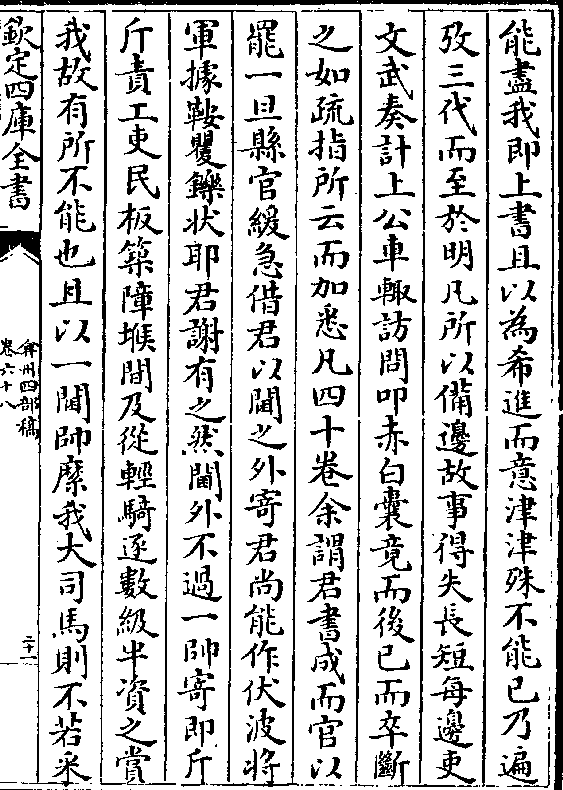 能盡我即上書且以為希進而意津津殊不能已乃遍
攷三代而至於明凡所以備邊故事得失長短每邊吏
文武奏計上公車輙訪問叩赤白囊竟而後已而卒斷
之如疏指所云而加悉凡四十卷余謂君書成而官以
罷一旦縣官緩急借君以閫之外寄君尚能作伏波將
軍據鞍矍鑠状耶君謝有之然閫外不過一帥寄即斤
斤責工吏民板築障堠間及從輕騎逐數級半資之賞
我故有所不能也且以一閫帥縻我大司馬則不若采
欽定四庫全書
弇州四部稿
卷六十八
二十一